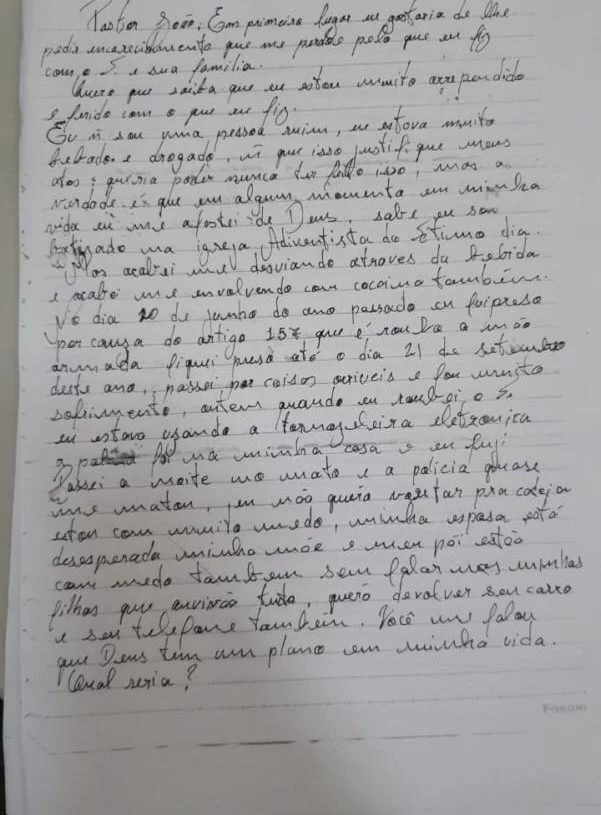 Pastor João, Em primeiro lugar eu gostaria de lhe
pedir encarecidamente que me perdoe pelo que eu fiz
com o S. e sua família.
Quero que saiba que eu estou muito arrependido
e ferido com o que eu fiz.
Eu ñ sou uma pessoa ruim, eu estava muito
bebado e drogado, ñ que isso justifique meus
atos; queria poder nunca ter feito isso, mas a
verdade é que em algum momento em minha
vida eu me afastei de Deus, sabe eu sou
batizado na igreja Adventista do Sétimo dia.
Mas acabei me desviando através da bebida
e acabei me envolvendo com cocaína também.
No dia 20 de junho do ano passado eu fui preso
por causa do artigo 157 que é roubo a mão
armada fiquei preso até o dia 21 de setembro
deste ano, passei por coisas orriveis e fou muito
sofrimento, ontem quando eu roubei o S.
eu estava usando a tornozeleira eletronica
a foi na minha casa e eu fugi
Passei a noite no mato e a policia quase
me matou, eu não quero voltar pra cadeia
estou com muito medo, minha esposa está
desesperada minha mãe e meu pai estão
com medo também sem falar nas minhas
filhas que ouvirão tudo, quero devolver seu carro
e seu telefone também. Você me falou
que Deus tem um plano em minha vida.
Qual seria?
FORONI